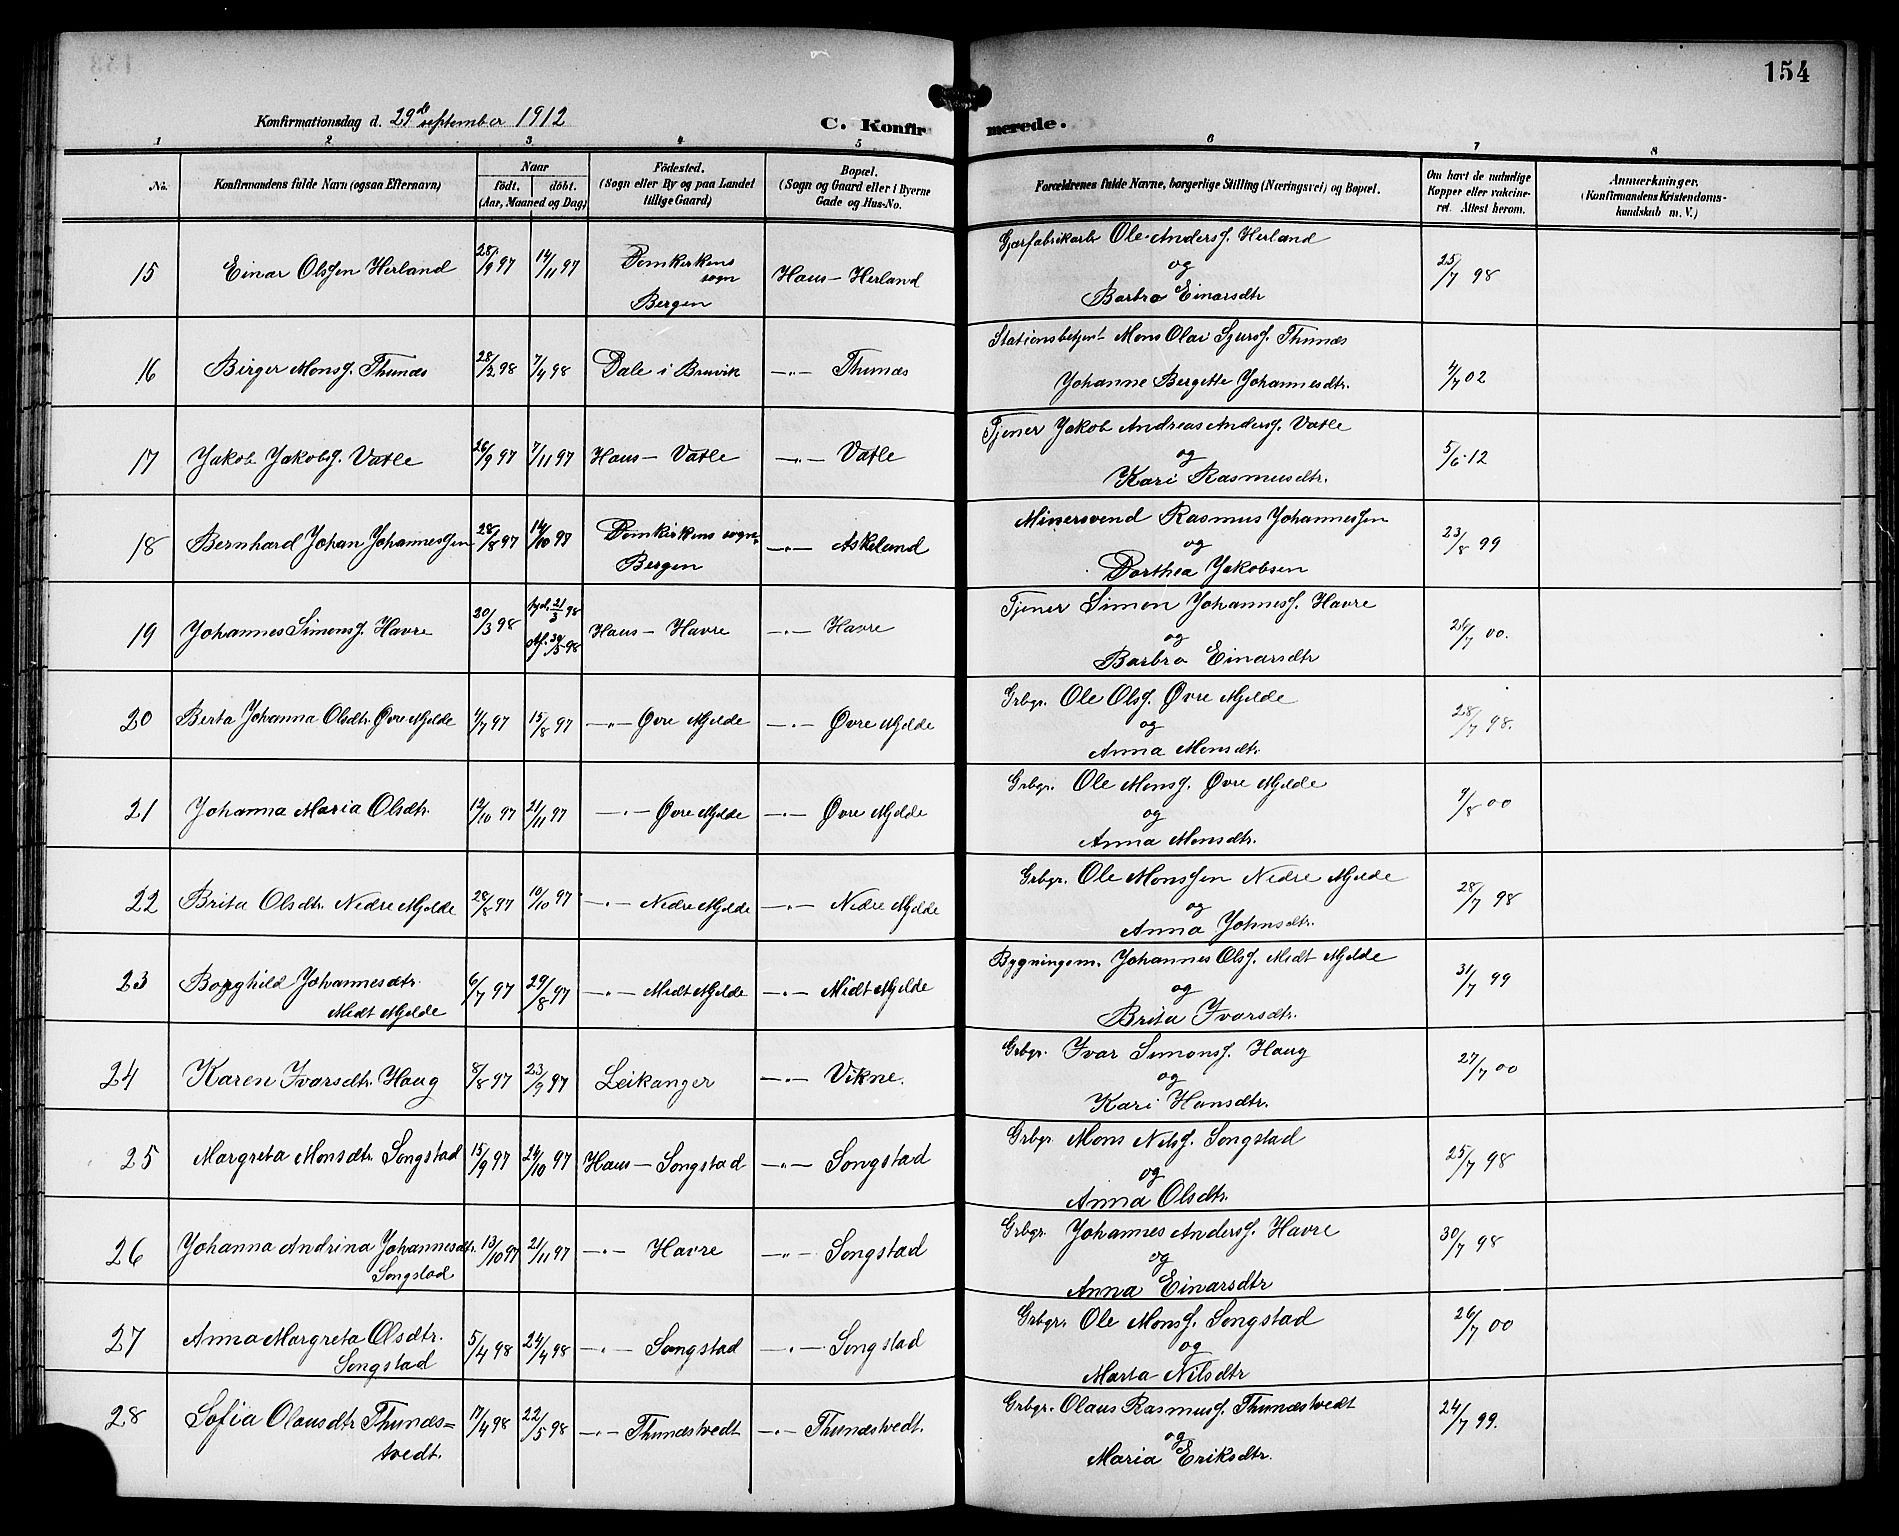 154
Konfirmationsdag d. 29de september 1912
C. Konfirmerede.
1 2 3 4 5 6 7 8
No. | Konfirmandens fulde Navn (ogsaa Efternavn) | Naar födt. döbt. (Aar, Maaned og Dag) | Födested. (Sogn eller By og paa Landet tillige Gaard) | Bopæl. (Sogn og Gaard eller i Byerne Gade og Hus-No. | Forældrenes fulde Navne, borgerlige Stilling (Næringsvei) og Bopæl. | Om havt de naturlige Kopper eller vakcineret. Attest herom. | Anmærkninger. (Konfirmandens Kristendomskundskab m. V.)
15 Einar Olssen Herland 28/9 97 14/11 97 Domkirkens sogn Bergen Haus - Herland Gjærfabrikarb. Ole Anderss. Herland og Barbro Einarsdtr 25/7 98
16 Birger Monss. Thunæs 28/2 98 7/4 98 Dale i Bruvik -"- Thunæs Stationsbetjent Mons Olai Sjurss. Thunæs Johanne Bergette Johannesdtr. 4/7 02
17 Jakob Jakobs. Vatle 26/9 97 7/11 97 Haus - Vatle -"- Vatle Tjener Jakob Andreas Anderss. Vatle og Kari Rasmusdtr. 5/6 12
18 Bernhard Johan Johannessen 28/8 97 14/10 97 Domkirkens sogn. Bergen -"- Askeland Minersvend Rasmus Johannessen og Dorthea Jakobsen 23/8 99
19 Johannes Simons. Havre 20/3 98 hjd. 21/3 98 Haus - Havre -"- Havre Tjener Simon Johanness. Havre og Barbro Einarsdtr 26/7 00.
20 Berta Johanna Olsdtr. Øvre Mjelde 4/7 97 15/8 97 -"- Øvre Mjelde -"- Øvre Mjelde Grbgr. Ole Olss. Øvre Mjelde og Anna Monsdtr. 28/7 98.
21 Johanna Maria Olsdtr. 12/10 97 21/11 97 -"- Øvre Mjelde -"- Øvre Mjelde Grbgr. Ole Monss. Øvre Mjelde og Anna Monsdtr. 9/8 00
22 Brita Olsdtr. Nedre Mjelde 28/8 97 10/10 97 -"- Nedre Mjelde -"- Nedre Mjelde Grbgr. Ole Monssen Nedre Mjelde og Anna Johnsdtr. 28/7 98
23 Borghild Johannesdtr. Midt Mjelde 6/7 97 29/8 97 -"- Midt Mjelde -"- Midt Mjelde Bygningsm. Johannes Olss. Midt Mjelde og Brita Ivarsdtr. 31/7 99
24 Karen Ivarsdtr. Haug 8/8 97 23/9 97 Leikanger -"- Vikne. Grbgr. Ivar Simonss. Haug og Kari Hansdtr. 27/7 00
25 Margreta Monsdtr. Songstad 15/9 97 24/10 97 Haus - Songstad -"- Songstad Grbgr. Mons Nilss. Songstad og Anna Olsdtr. 25/7 98
26 Johanna Andrina Johannesdtr. Songstad 13/10 97 21/11 97 -"- Havre -"- Songstad Grbgr. Johannes Anderss. Havre og Anna Einarsdtr 30/7 98
27 Anna Margreta Olsdtr. Songstad 5/4 98 24/4 98 -"- Songstad -"- Songstad Grbgr. Ole Monss. Songstad og Marta Nilsdtr 26/7 00
28 Sofia Olausdtr. Thunæstvedt. 17/4 98 22/5 98 -"- Thunæstvedt -"- Thunæstvedt. Grbgr. Olaus Rasmuss. Thunæstvedt og Maria Eriksdtr. 24/7 99.